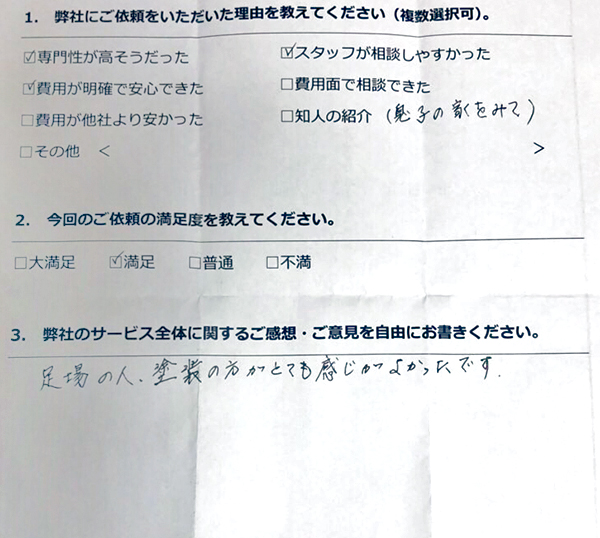 1. 弊社にご依頼をいただいた理由を教えてください（複数選択可）。
☑専門性が高そうだった ☑スタッフが相談しやすかった
☑費用が明確で安心できた □費用面で相談できた
□費用が他社より安かった □知人の紹介 (息子の家をみて)
□その他 < >
2. 今回のご依頼の満足度を教えてください。
□大満足 ☑満足 □普通 □不満
3. 弊社のサービス全体に関するご感想・ご意見を自由にお書きください。
足場の人、塗装の方がとても感じがよかったです.